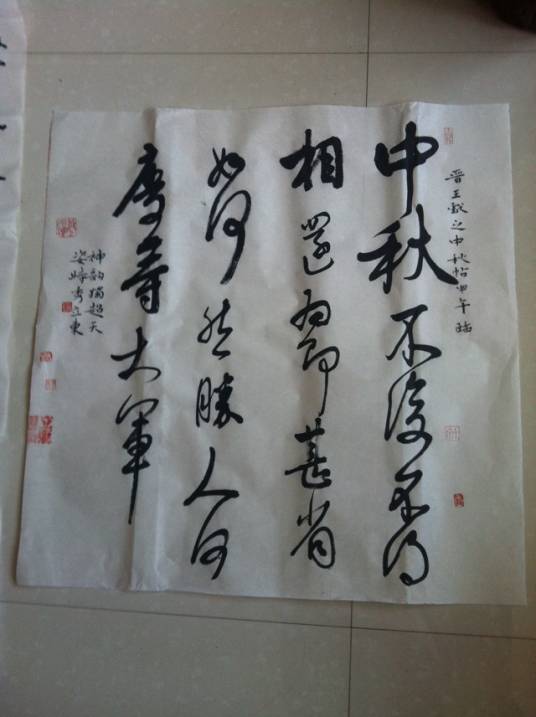 晋王献之中秋帖甲午臨
中秋不復不得
相還為即甚省
如何然勝人何
慶等大軍
神韵獨超天
姿特秀立東